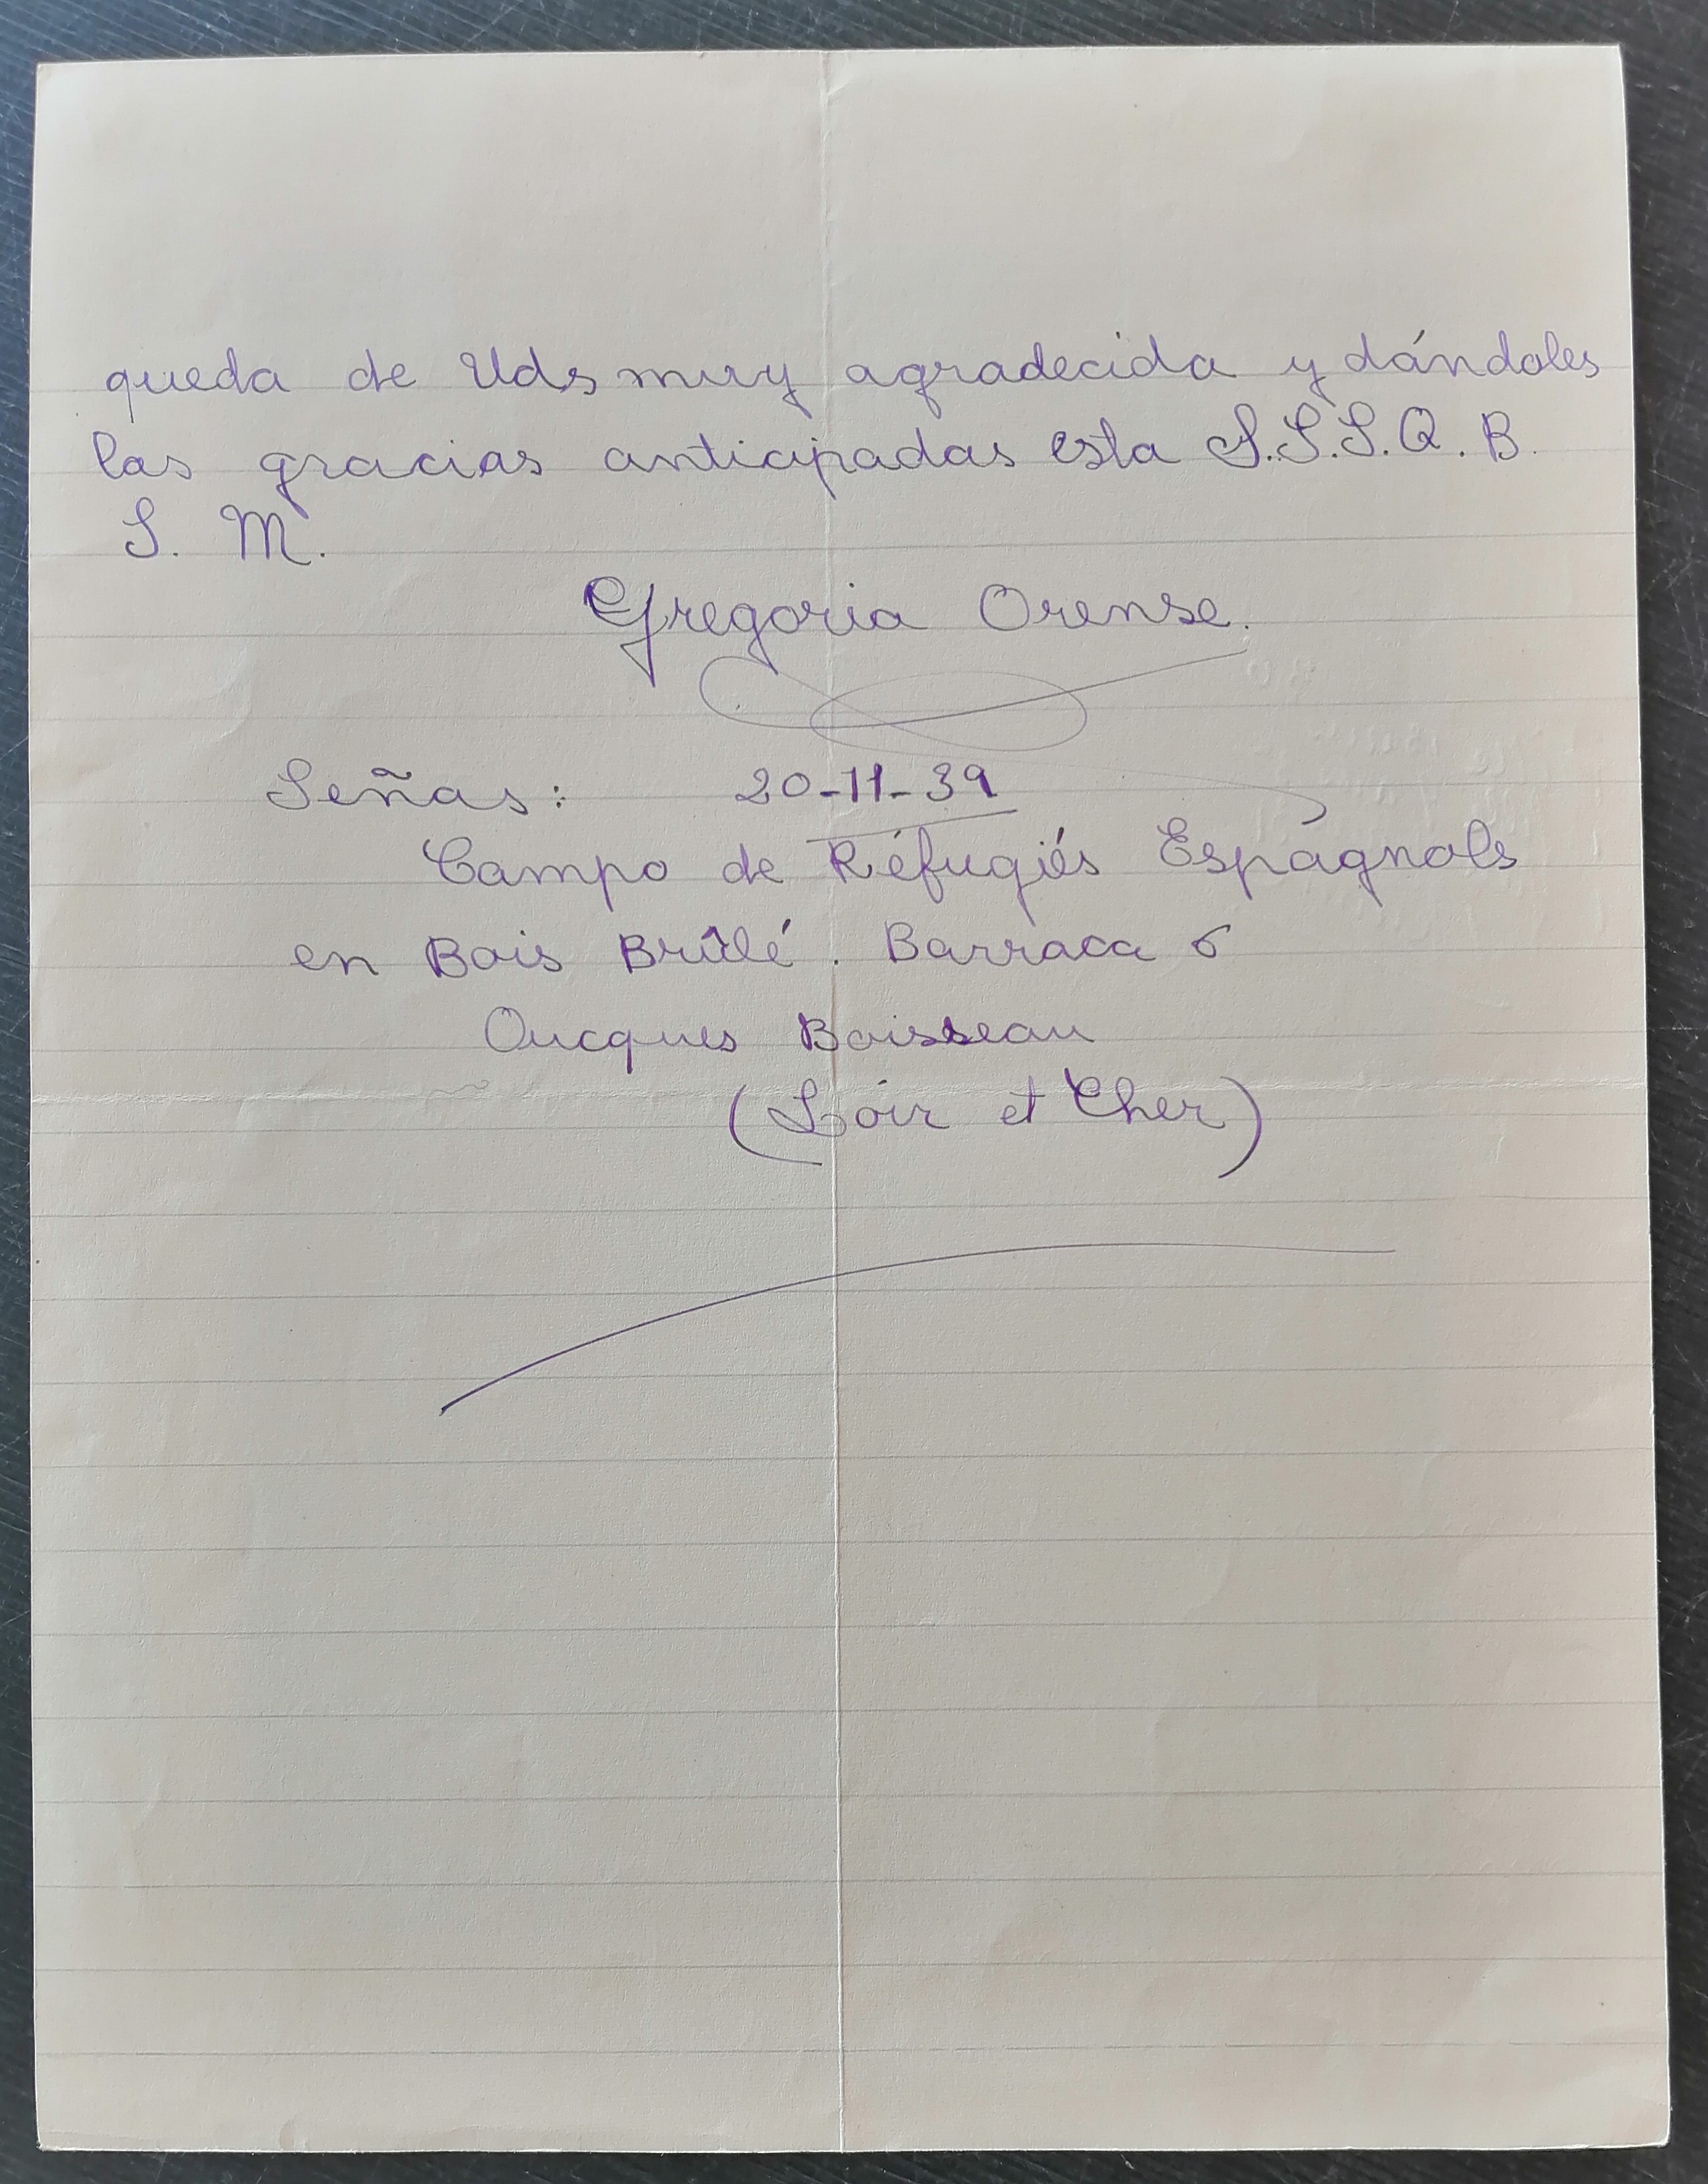 queda de Uds muy agradecida y dándoles
las gracias anticipadas esta S.S.S.Q.B.
S. M.
Gregoria Orense.
Señas: 20-11-39
Campo de Réfugiés Espagnols
en Bois Brûlé. Barraca 6
Oucques Boisseau
(Loir et Cher)